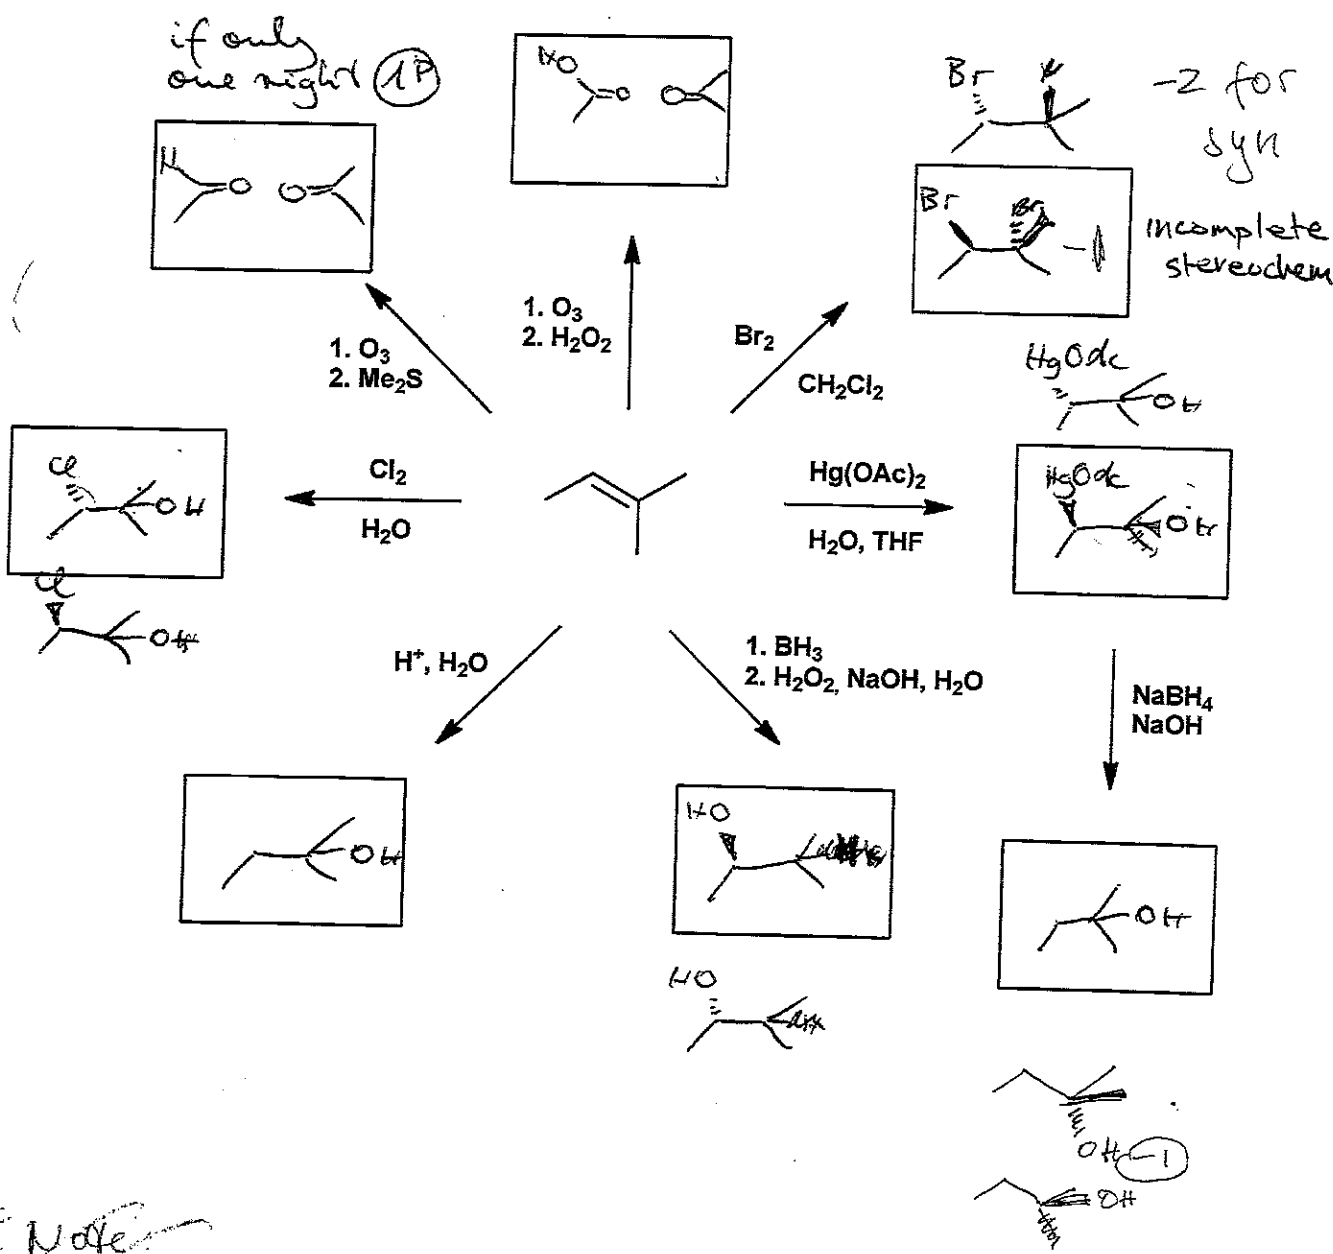 if only
one right 1P
HO
O O
H
O O
Br
-2 for
syn
Br Br
-1
incomplete
stereochem
1. O₃
2. H₂O₂
1. O₃
2. Me₂S
Br₂
CH₂Cl₂
HgOAc
OH
Cl
OH
Cl₂
H₂O
Hg(OAc)₂
H₂O, THF
HgOAc
OH
Cl
OH
H⁺, H₂O
1. BH₃
2. H₂O₂, NaOH, H₂O
NaBH₄
NaOH
OH
HO
OH
HO
OH -1
OH
Note